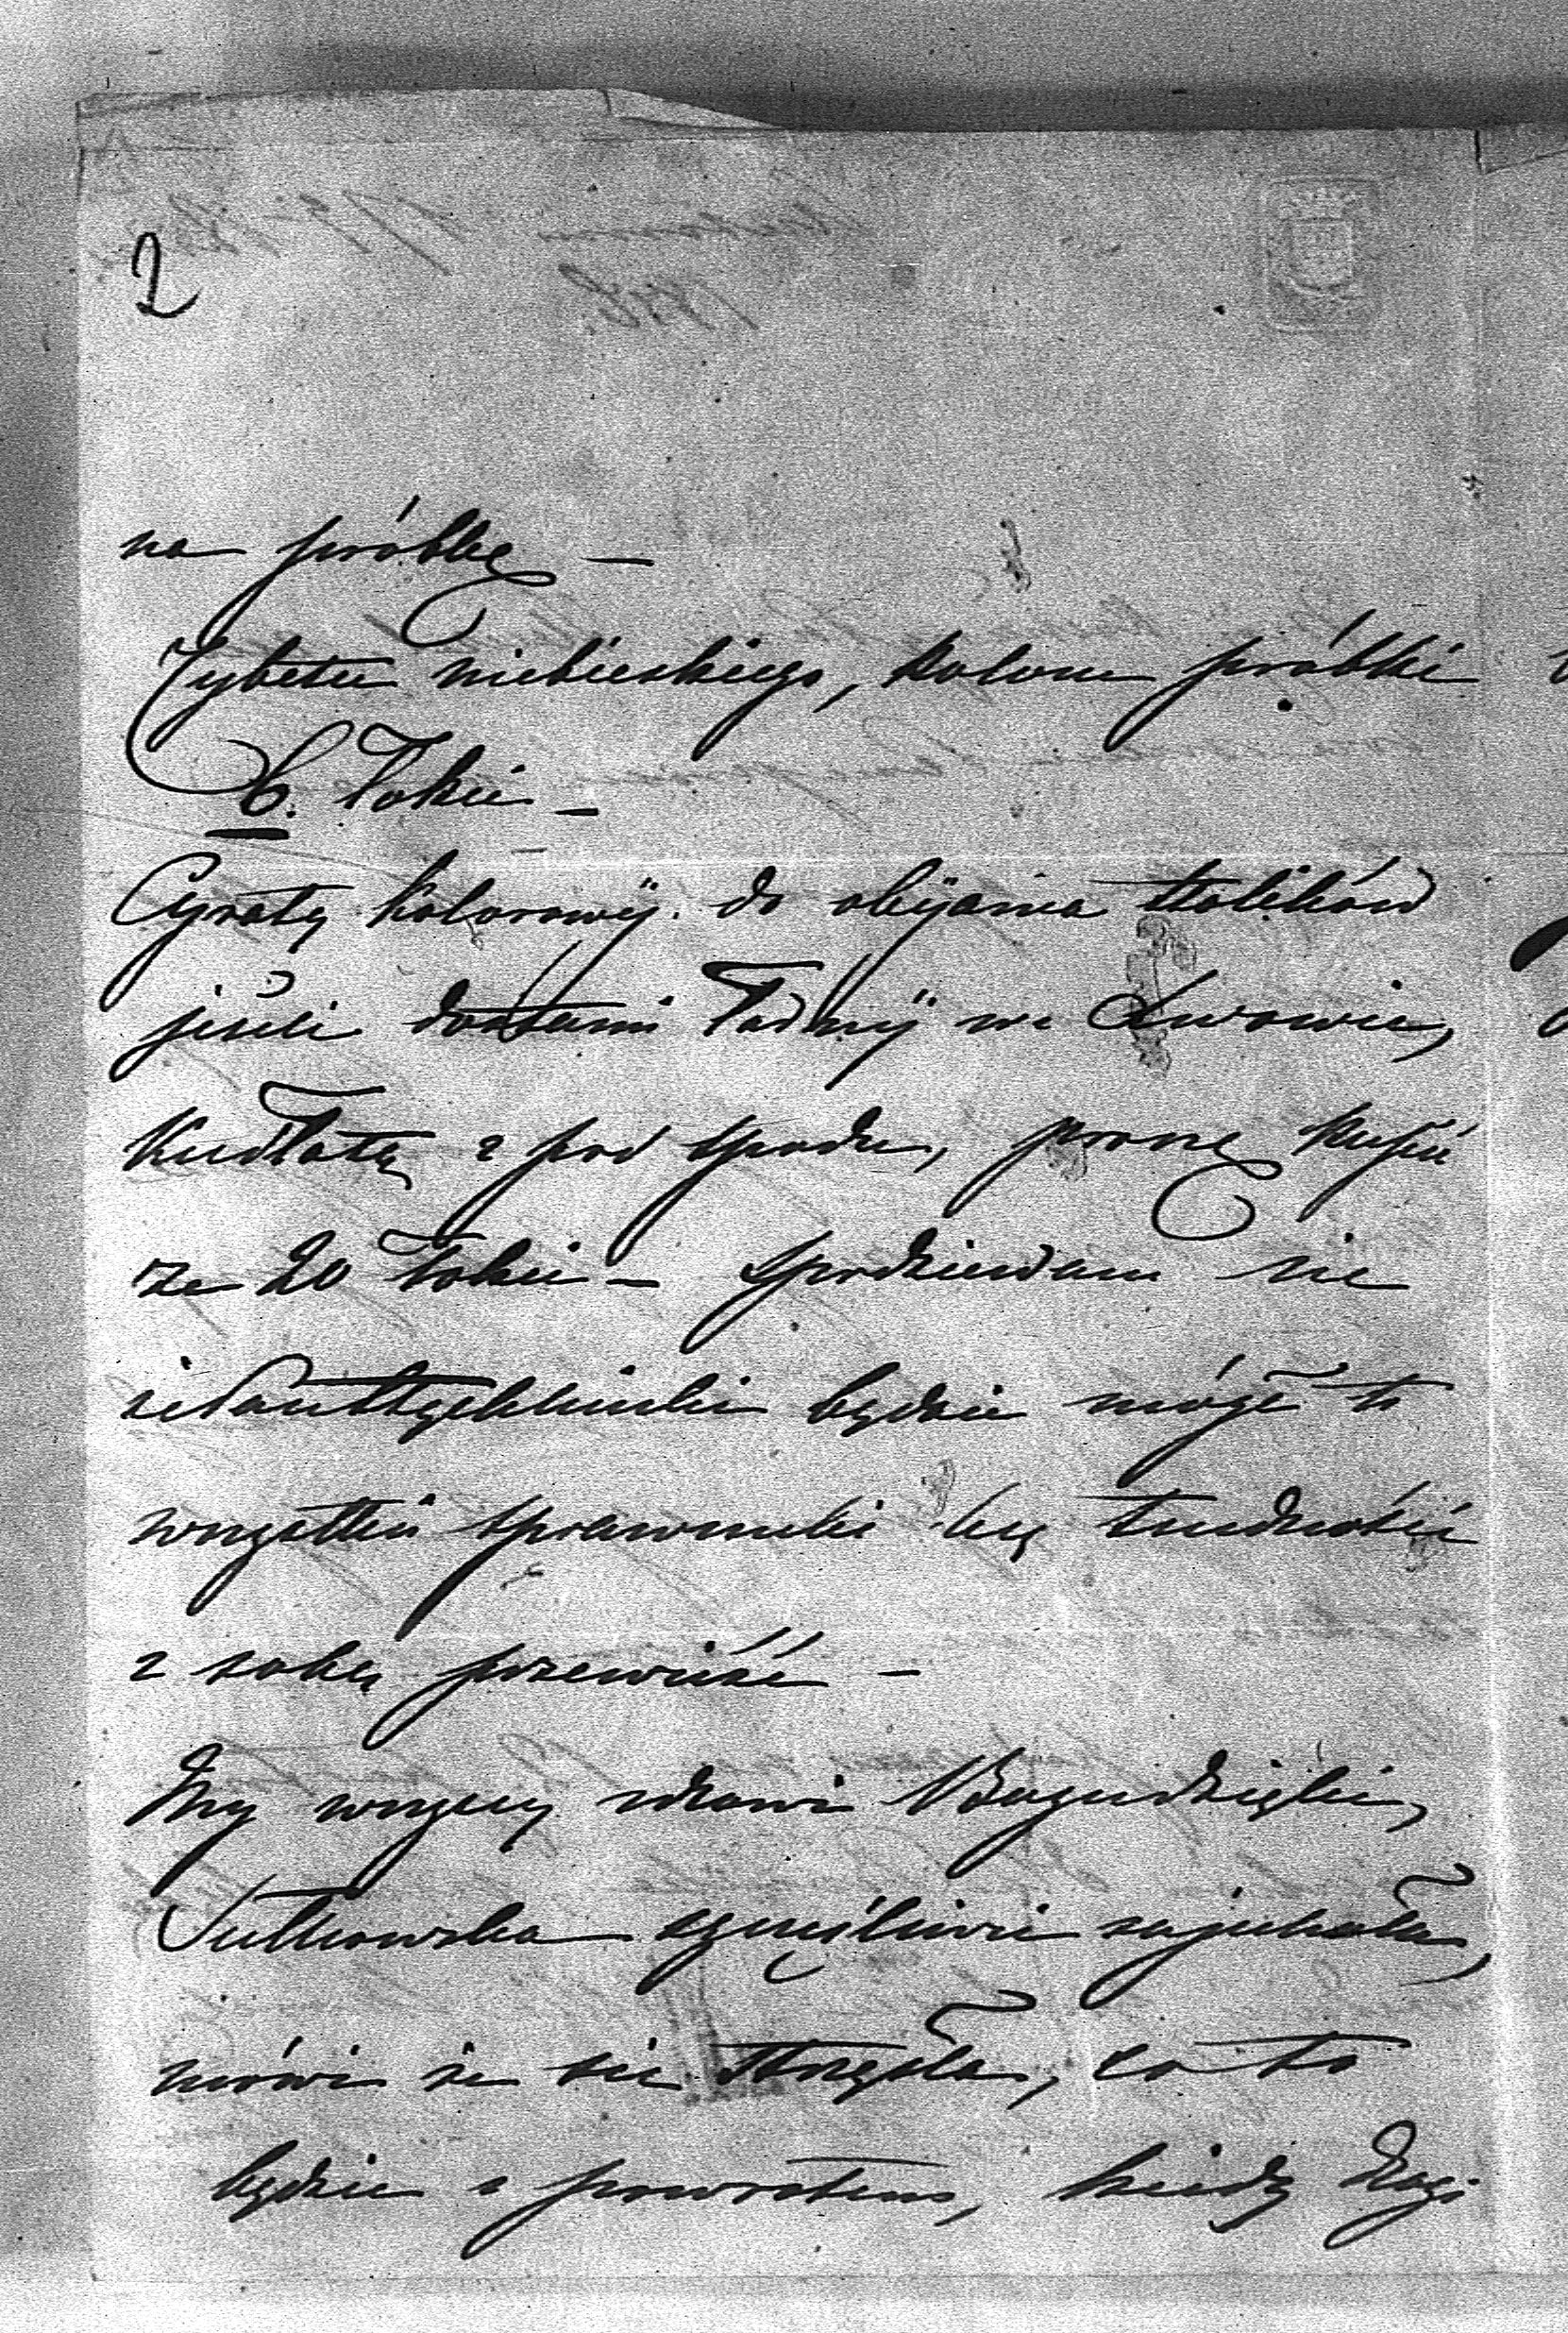 2
na próbkę —
Tybetu niebieskiego, koloru próbki
6. łokci —
Cyraty kolorowéj do obijania stolików
jeśli dostanie ładnéj we Lwowie,
Kudłatą z pod spodu, proszę kupić
ze 20 łokci — Spodziewam się
że będzie mógł to
wszystko bez trudności
z sobą przewieść —
My wszyscy zdrowi Bogu dzięki,
Sutkowska szczęśliwie zajechała,
mówi że się trzęsła, co to
będzie z powrotem, kiedy drogi